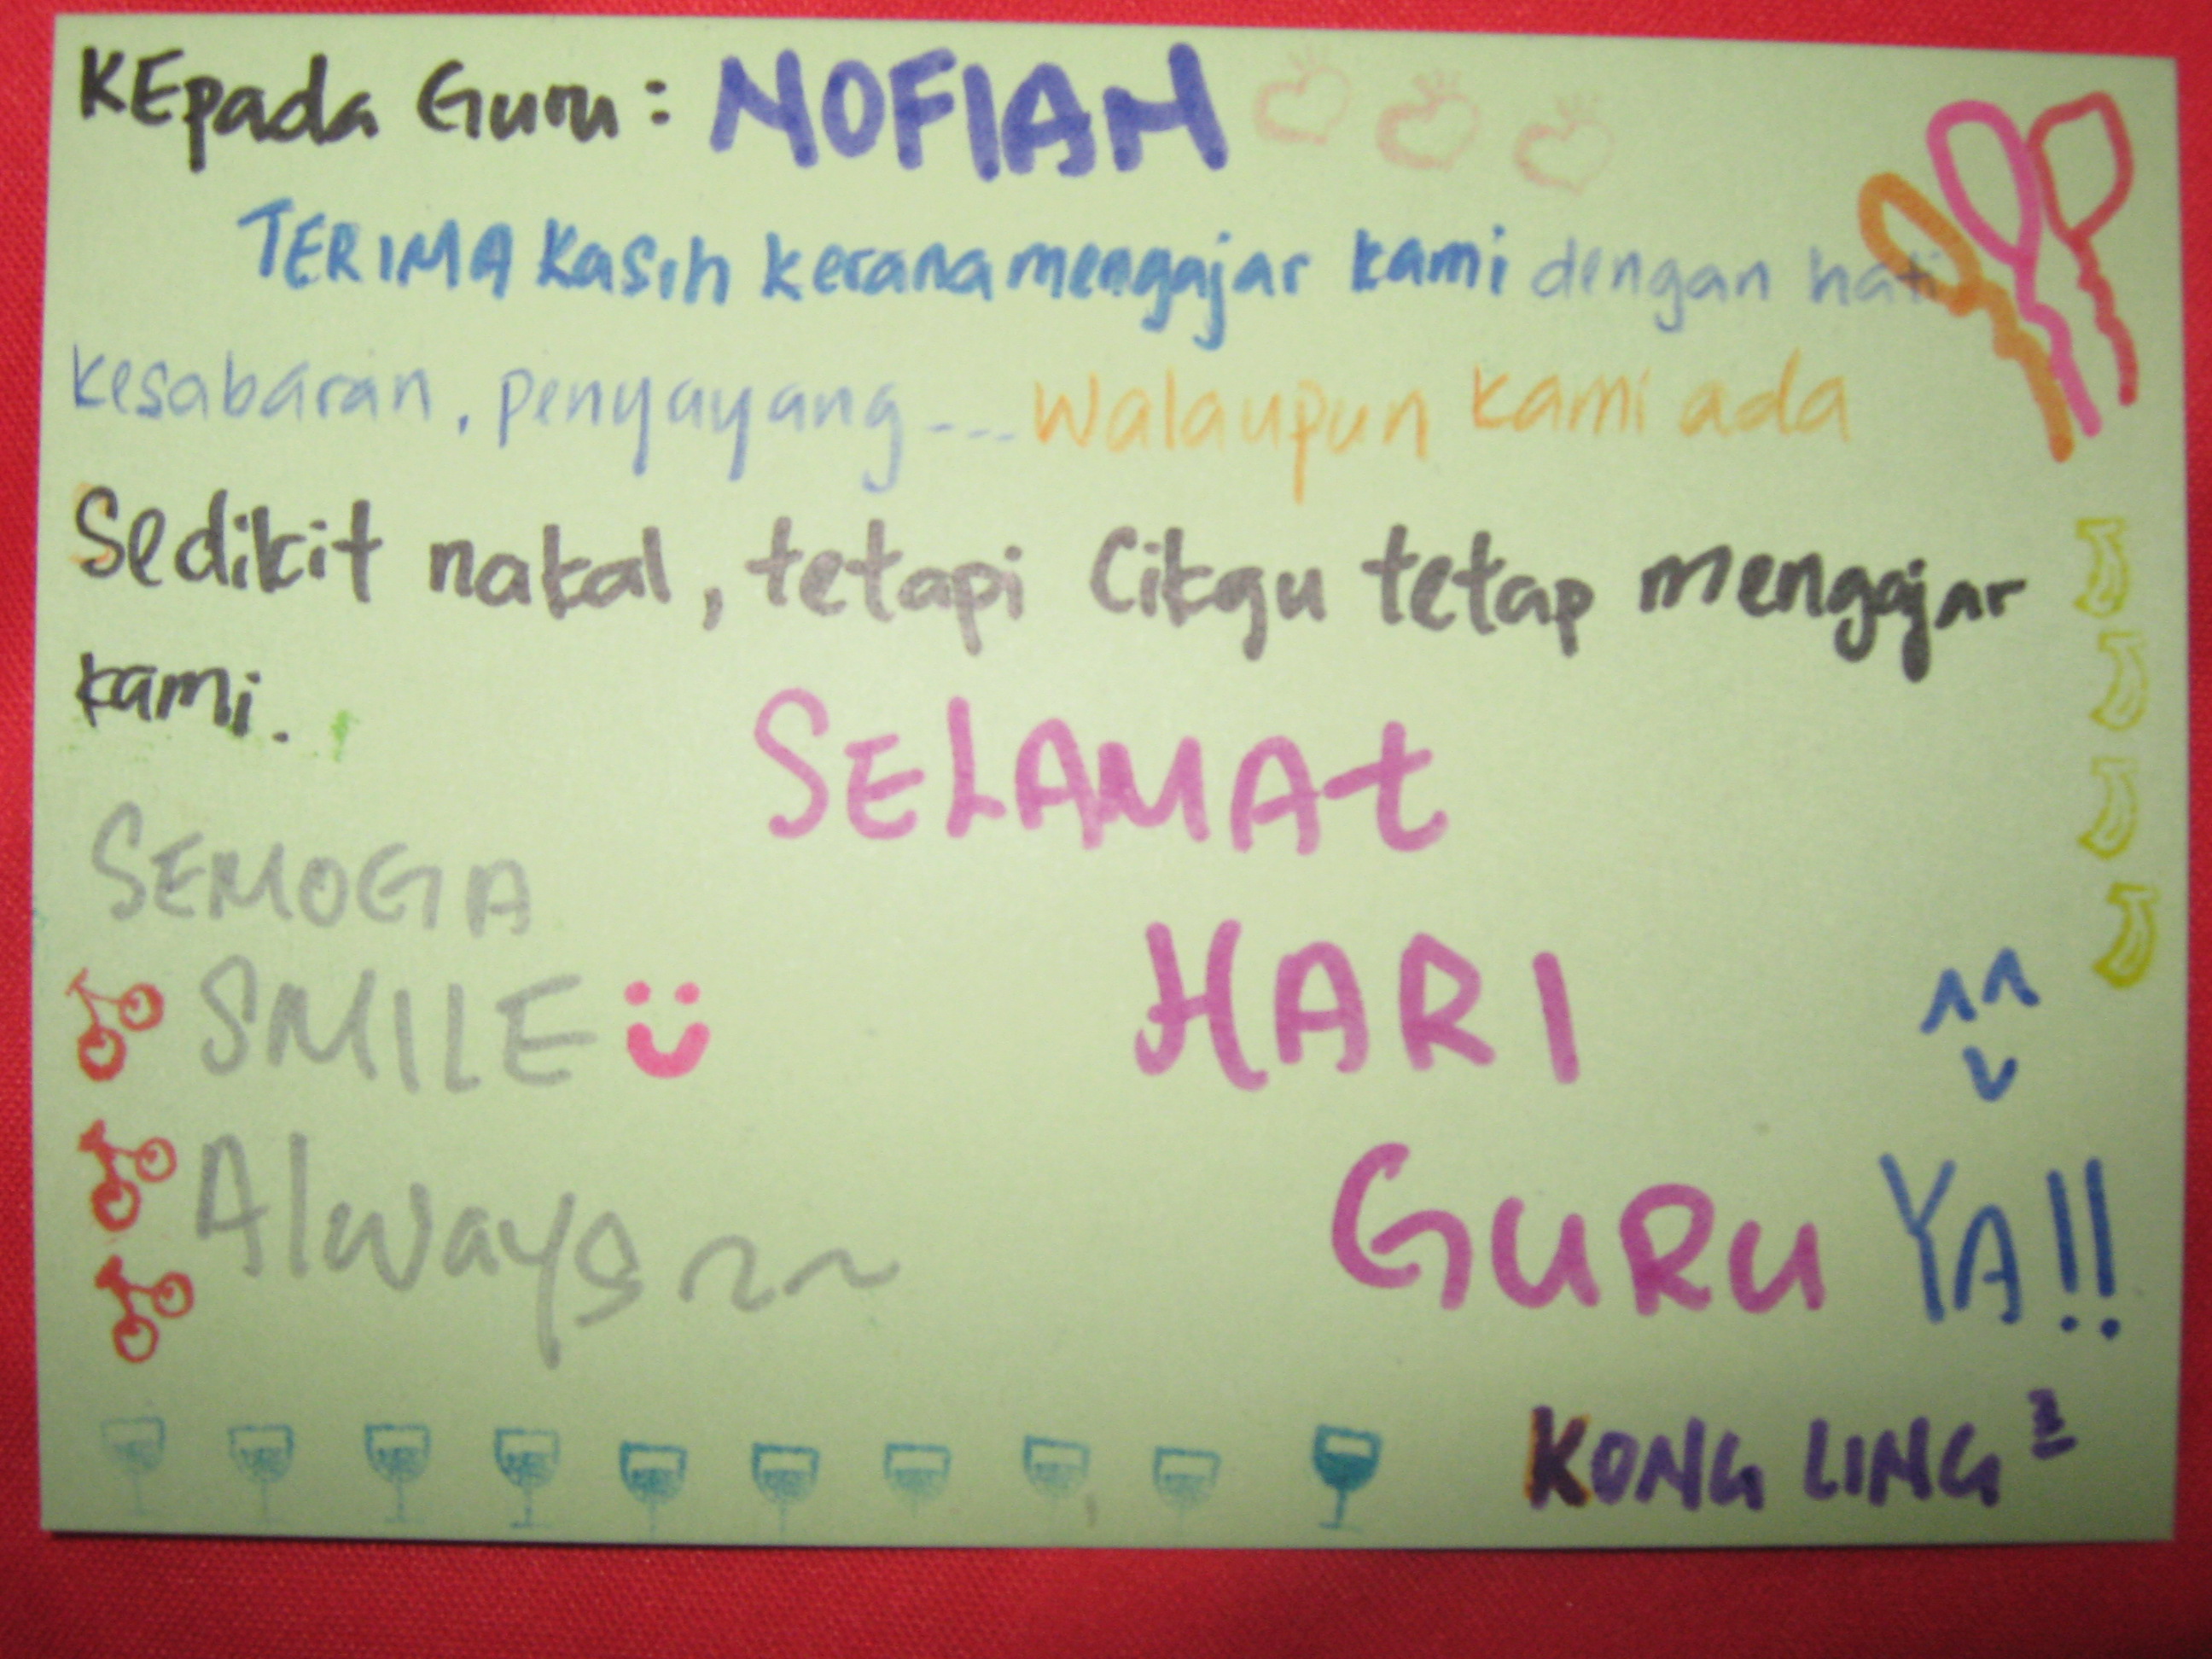 KEpada Guru: NOFIAN
TERIMA Kasih kerana mengajar kami dengan hati
kesabaran, penyayang --- walaupun kami ada
Sedikit nakal, tetapi Cikgu tetap mengajar
kami.
SELAMAt
HARI
GURU YA!!
SEMOGA
SMILE
Always ~~
KONG LING